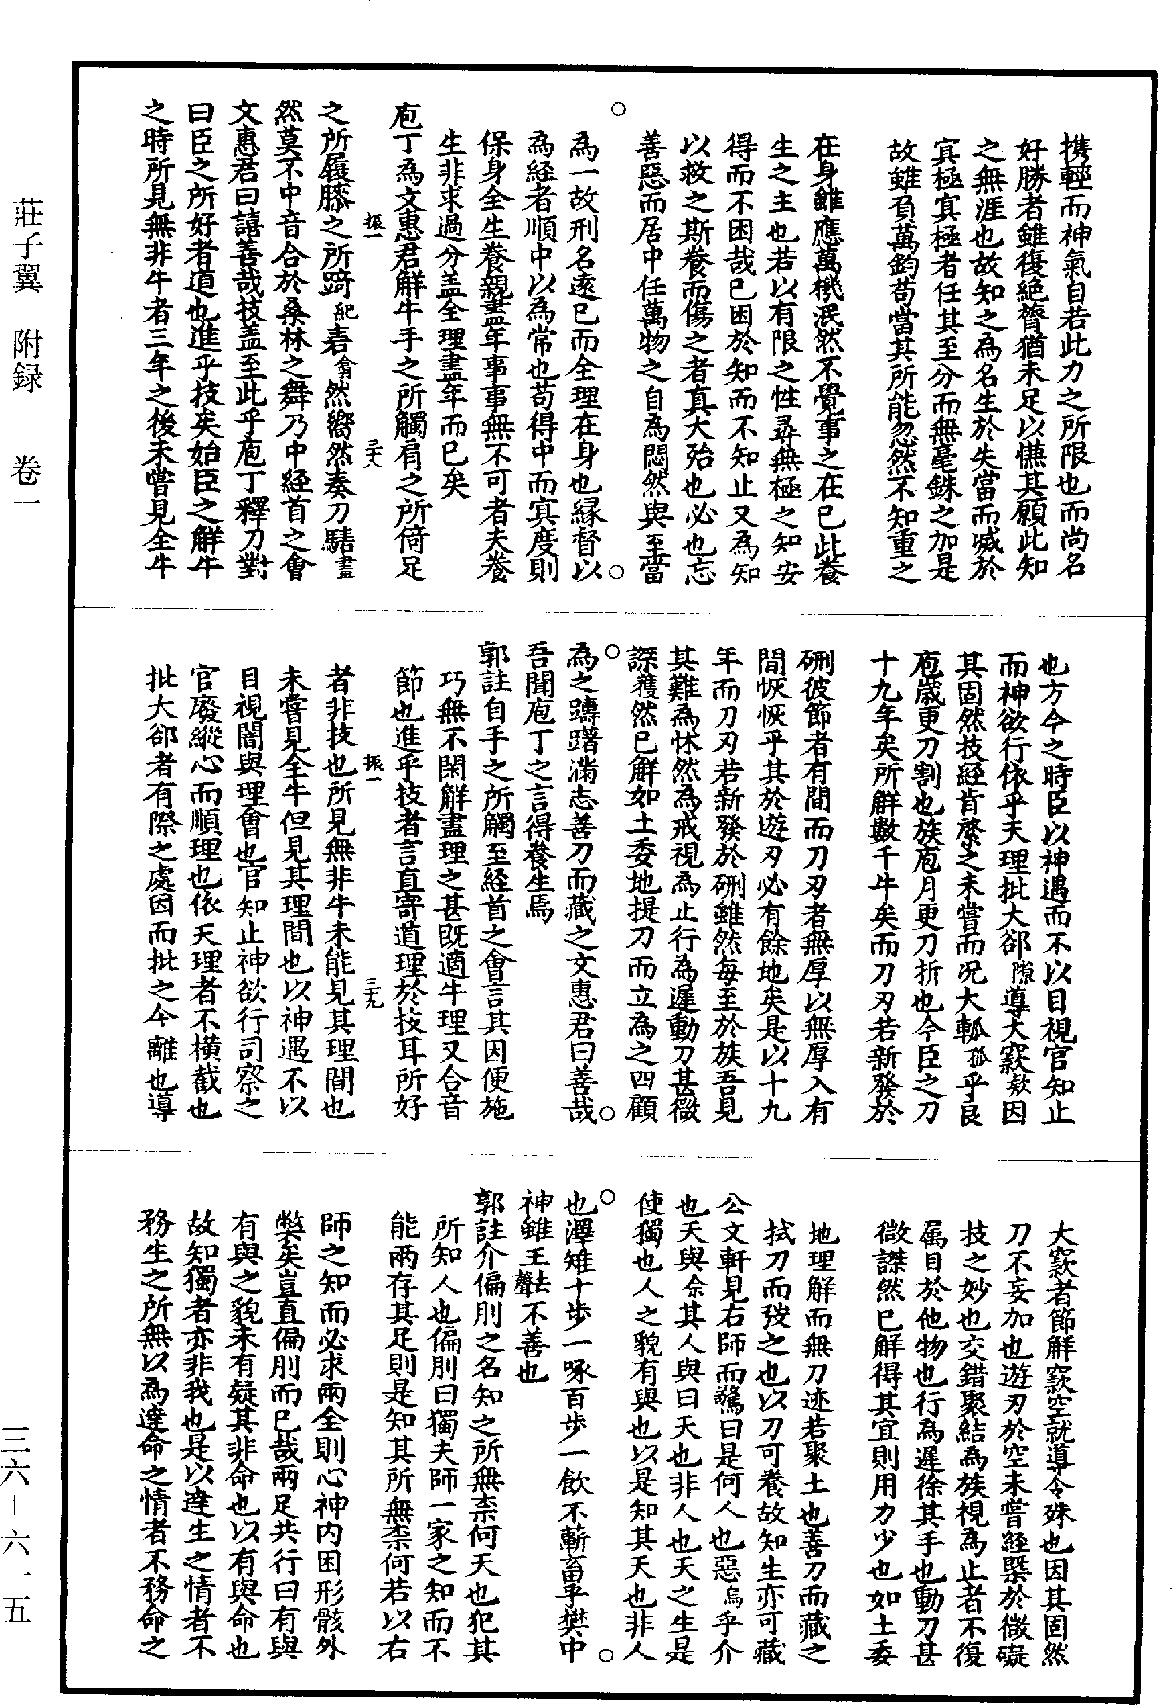 攜輕而神氣自若此力之所限也而尚名
好勝者雖復絕膂猶未足以慊其願此知
之無涯也故知之為名生於失當而滅於
冥極冥極者任其至分而無毫銖之加是
故雖負萬鈞苟當其所能忽然不知重之
在身雖應萬機泯然不覺事之在己此養
生之主也若以有限之性尋無極之知安
得而不困哉已困於知而不知止又為知
以救之斯養而傷之者真大殆也必也忘
善惡而居中任萬物之自為悶然與至當
○為一故刑名遠己而全理在身也緣督以○
為經者順中以為常也苟得中而冥度則
保身全生養親盡年事事無不可者夫養
生非求過分盖全理盡年而已矣
庖丁為文惠君解牛手之所觸肩之所倚足
振一 三十八
之所履膝之所踦紀砉翕然嚮然奏刀騞畫
然莫不中音合於桑林之舞乃中經首之會
文惠君曰譆善哉技盖至此乎庖丁釋刀對
曰臣之所好者道也進乎技矣始臣之解牛
之時所見無非牛者三年之後未嘗見全牛
也方今之時臣以神遇而不以目視官知止
而神欲行依乎天理批大郤隙導大窾欵因
其固然技經肯綮之未嘗而况大軱孤乎良
庖歲更刀割也族庖月更刀折也今臣之刀
十九年矣所解數千牛矣而刀刃若新發於
硎彼節者有間而刀刃者無厚以無厚入有
間恢恢乎其於遊刃必有餘地矣是以十九
年而刀刃若新發於硎雖然每至於族吾見
其難為怵然為戒視為止行為遲動刀甚微
謋獲然已解如土委地提刀而立為之四顧
○為之躊躇滿志善刀而藏之文惠君曰善哉○
吾聞庖丁之言得養生焉
郭註自手之所觸至經首之會言其因便施
巧無不閑解盡理之甚既適牛理又合音
節也進乎技者言直寄道理於技耳所好
振一 三十九
者非技也所見無非牛未能見其理間也
未嘗見全牛但見其理間也以神遇不以
目視闇與理會也官知止神欲行司察之
官廢縱心而順理也依天理者不橫截也
批大郤者有際之處因而批之令離也導
大窾者節解窾空就導令殊也因其固然
刀不妄加也遊刃於空未嘗經槩於微礙
技之妙也交錯聚結為族視為止者不復
屬目於他物也行為遲徐其手也動刀甚
微謋然已解得其宜則用力少也如土委
地理解而無刀迹若聚土也善刀而藏之
拭刀而弢之也以刀可養故知生亦可藏
公文軒見右師而驚曰是何人也惡烏乎介
也天與余其人與曰天也非人也天之生是
使獨也人之貌有與也以是知其天也非人
○也澤雉十步一啄百步一飲不蘄畜乎樊中○
神雖王去聲不善也
郭註介偏刖之名知之所無柰何天也犯其
所知人也偏刖曰獨夫師一家之知而不
能兩存其足則是知其所無柰何若以右
師之知而必求兩全則心神內困形骸外
獘矣豈直偏刖而已哉兩足共行曰有與
有與之貌未有疑其非命也以有與命也
故知獨者亦非我也是以達生之情者不
務生之所無以為達命之情者不務命之
莊子翼 附録 卷一
三六-六一五